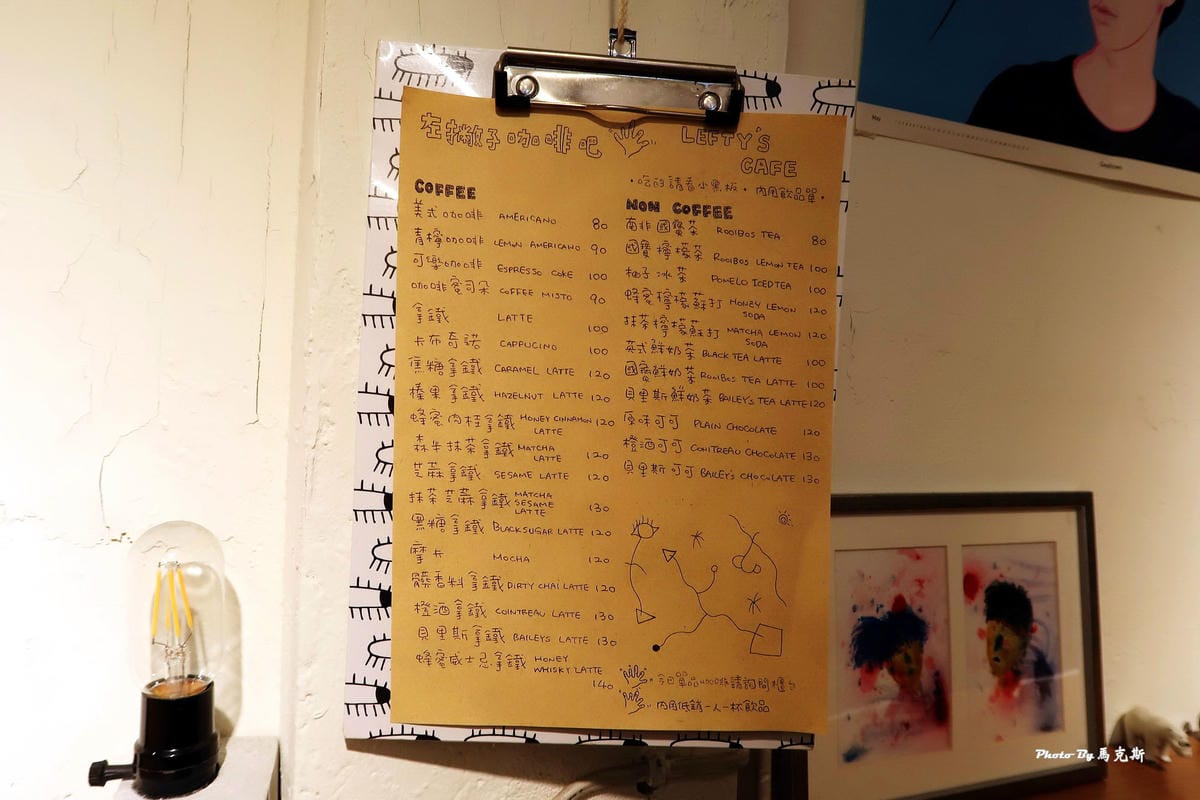 左撇子咖啡吧 LEFTY'S
CAFE
•吃的請看小黑板• 內用飲品單•
COFFEE
美式咖啡 AMERICANO 80
青檸咖啡 LEMON AMERICANO 90
可樂咖啡 ESPRESSO COKE 100
咖啡蜜司朵 COFFEE MISTO 90
拿鐵 LATTE 100
卡布奇諾 CAPPUCINO 100
焦糖拿鐵 CARAMEL LATTE 120
榛果拿鐵 HAZELNUT LATTE 120
蜂蜜肉桂拿鐵 HONEY CINNAMON 120
LATTE
森半抹茶拿鐵 MATCHA
LATTE 120
芝麻拿鐵 SESAME LATTE 120
抹茶芝麻拿鐵 MATCHA
SESAME
LATTE 130
黑糖拿鐵 BLACKSUGAR LATTE 120
摩卡 MOCHA 120
髒香料拿鐵 DIRTY CHAI LATTE 120
橙酒拿鐵 COINTREAU LATTE 130
貝里斯拿鐵 BAILEYS LATTE 130
蜂蜜威士忌拿鐵 HONEY
WHISKY LATTE
140
NON COFFEE
南非國寶茶 ROOIBOS TEA 80
國寶檸檬茶 ROOIBOS LEMON TEA 100
柚子冰茶 POMELO ICED TEA 100
蜂蜜檸檬蘇打 HONEY LEMON 120
SODA
抹茶檸檬蘇打 MATCHA LEMON 120
SODA
英式鮮奶茶 BLACK TEA LATTE 100
國寶鮮奶茶 ROOIBOS TEA LATTE 100
貝里斯鮮奶茶 BAILEY'S TEA LATTE 120
原味可可 PLAIN CHOCOLATE 120
橙酒可可 COINTREAU CHOCOLATE 130
貝里斯可可 BAILEY'S CHOCOLATE 130
今日單品咖啡請詢問櫃台
內用低銷一人一杯飲品
May
Photo By 馬克斯